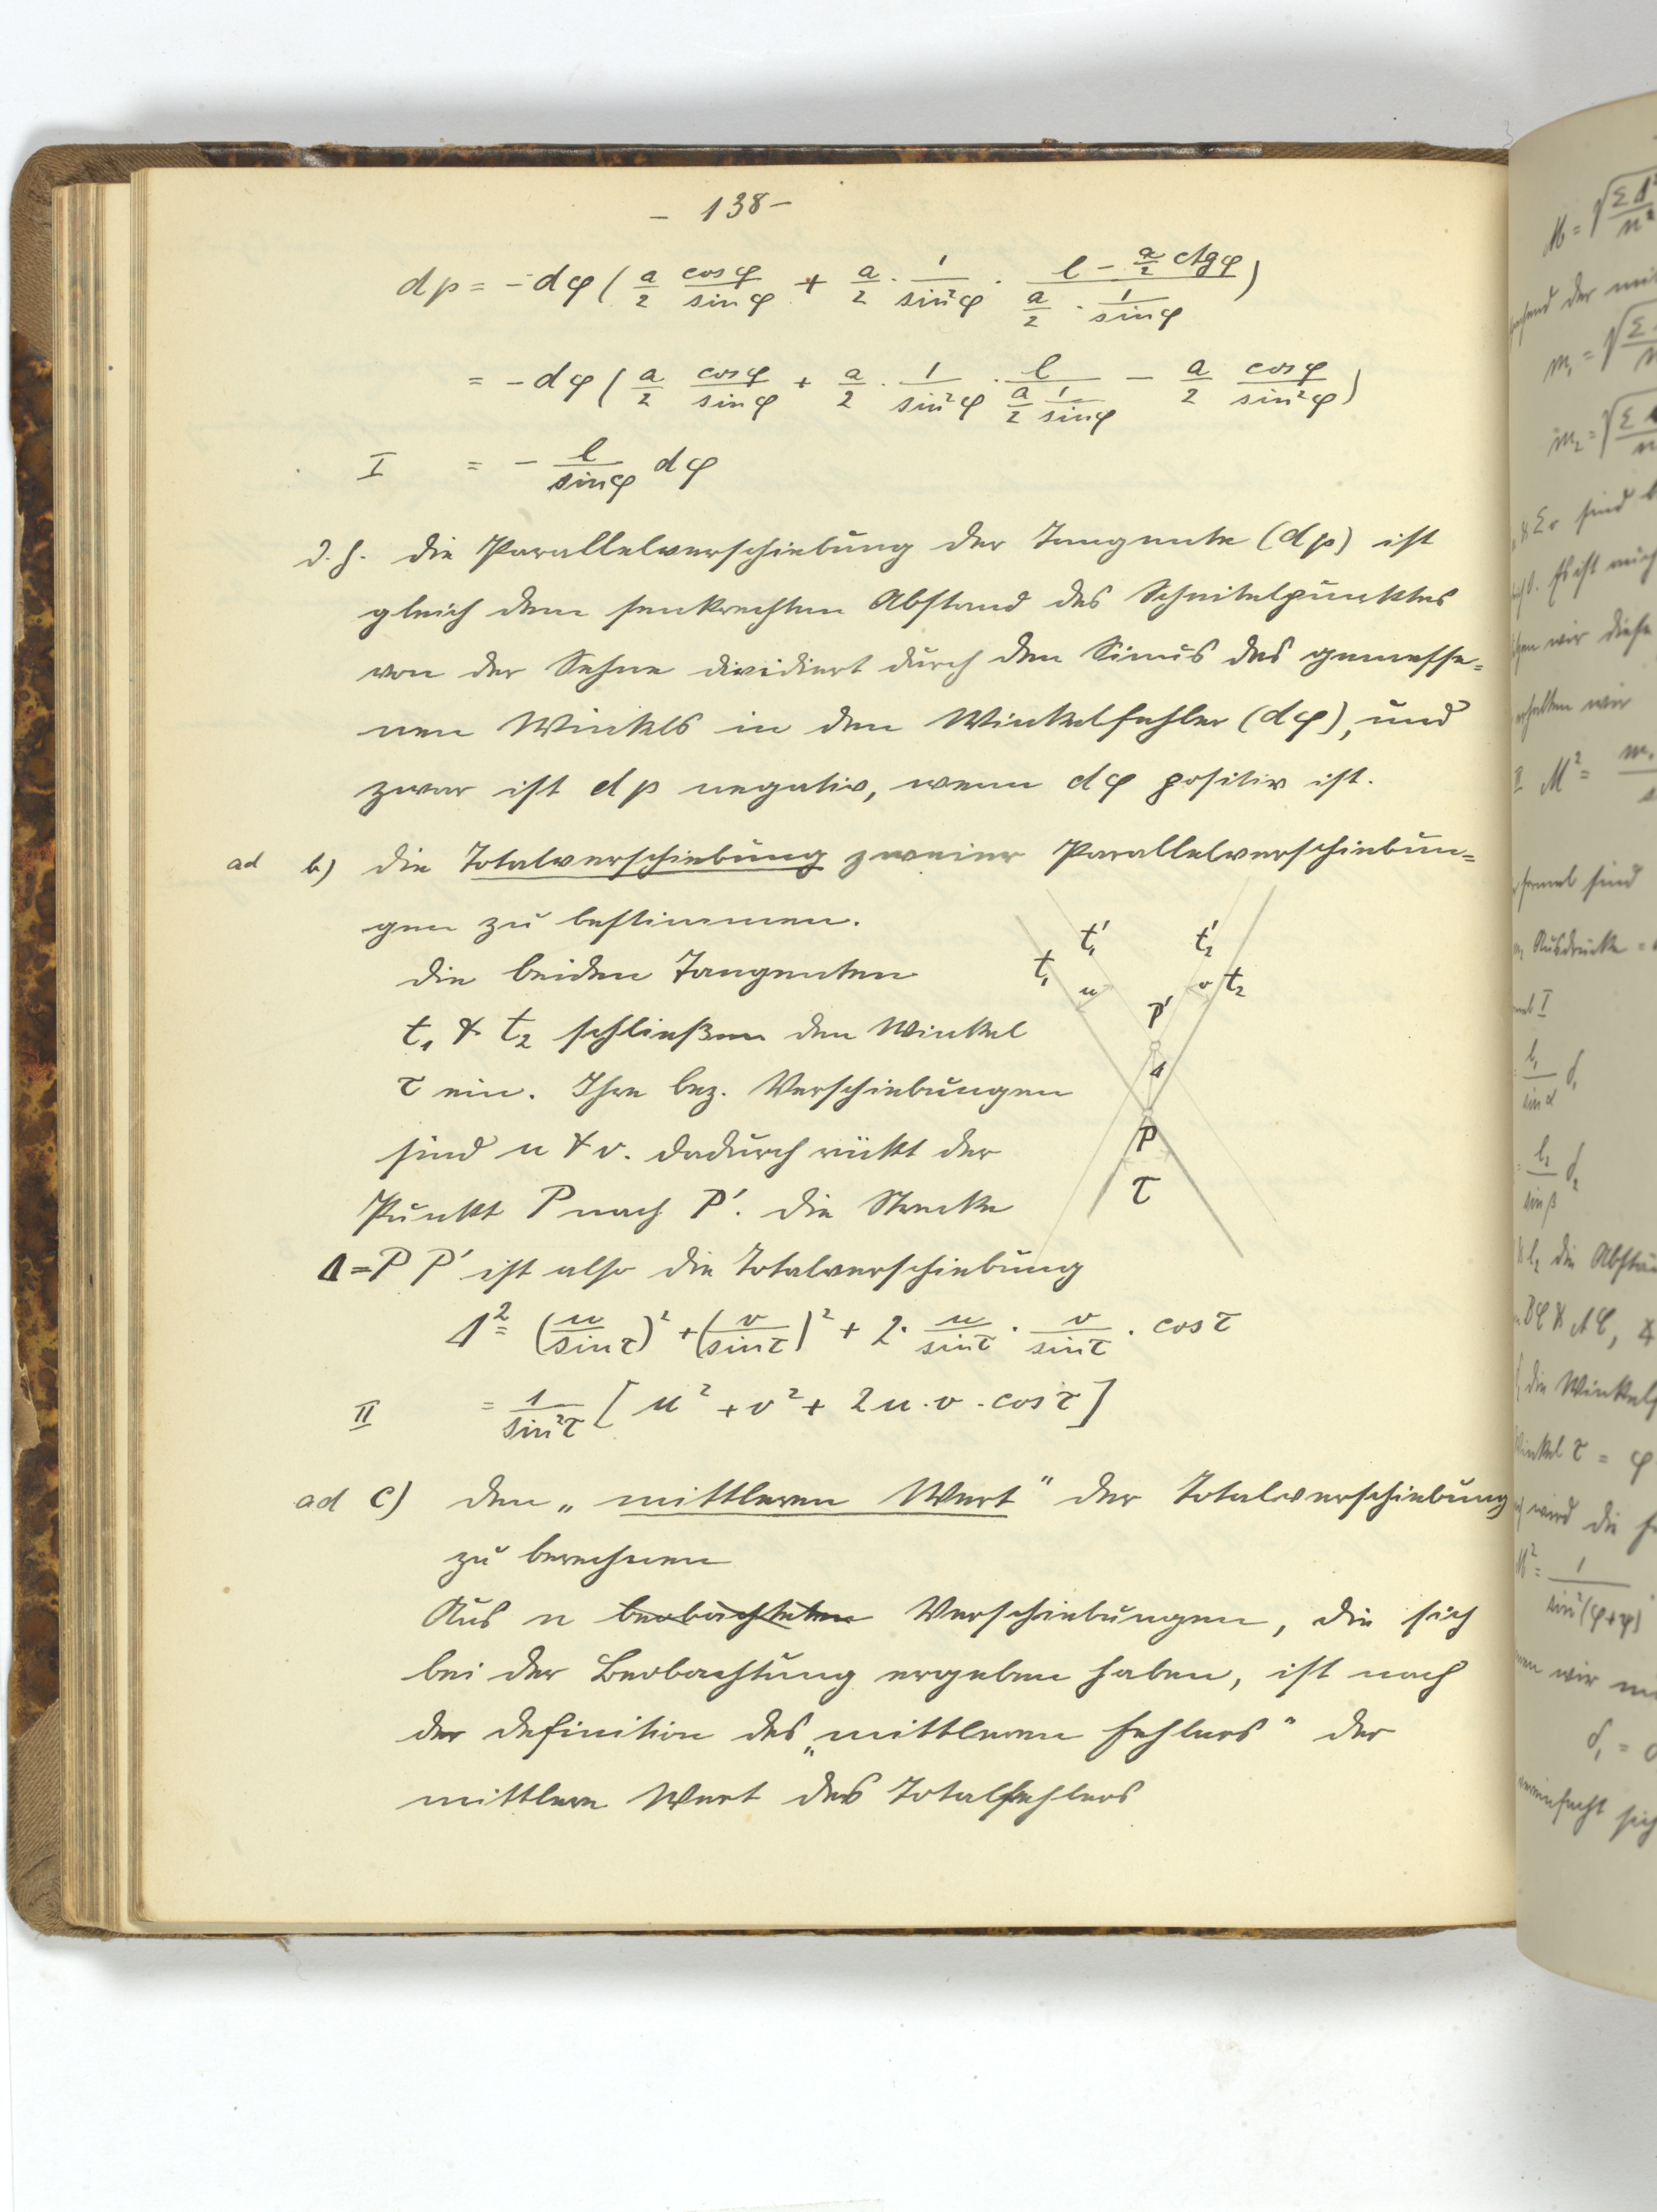 - 138 -
dp = - dφ ( a/2 cosφ/sinφ + a/2 · 1/sin²φ · (l - a/2 ctgφ)/(a/2 · 1/sinφ) )
= - dφ ( a/2 cosφ/sinφ + a/2 · 1/sin²φ · l/(a/2 1/sinφ) - a/2 cosφ/sin²φ )
I = - l/sinφ dφ
d. h. die Parallelverschiebung der Tangente (dp) ist
gleich dem senkrechten Abstand des Scheitelpunktes
von der Sehne dividiert durch den Sinus des gemesse=
nen Winkels in den Winkelfehler (dφ), und
zwar ist dp negativ, wenn dφ positiv ist.
ad b) die Totalverschiebung zweier Parallelverschiebun=
gen zu bestimmen.
die beiden Tangenten
t₁ & t₂ schließen den Winkel
τ ein. Ihre bez. Verschiebungen
sind u & v. dadurch rückt der
Punkt P nach P'. die Strecke
Δ = P P' ist also die Totalverschiebung
t₁ t₁' t₂' t₂
u v
P'
Δ
P
τ
Δ² = (u/sinτ)² + (v/sinτ)² + 2 · u/sinτ · v/sinτ · cosτ
II = 1/sin²τ [ u² + v² + 2u · v · cosτ ]
ad c) den „mittleren Wert“ der Totalverschiebung
zu berechnen
Aus n beobachteten Verschiebungen, die sich
bei der Beobachtung ergeben haben, ist nach
der Definition des „mittleren Fehlers“ der
mittlere Wert des Totalfehlers